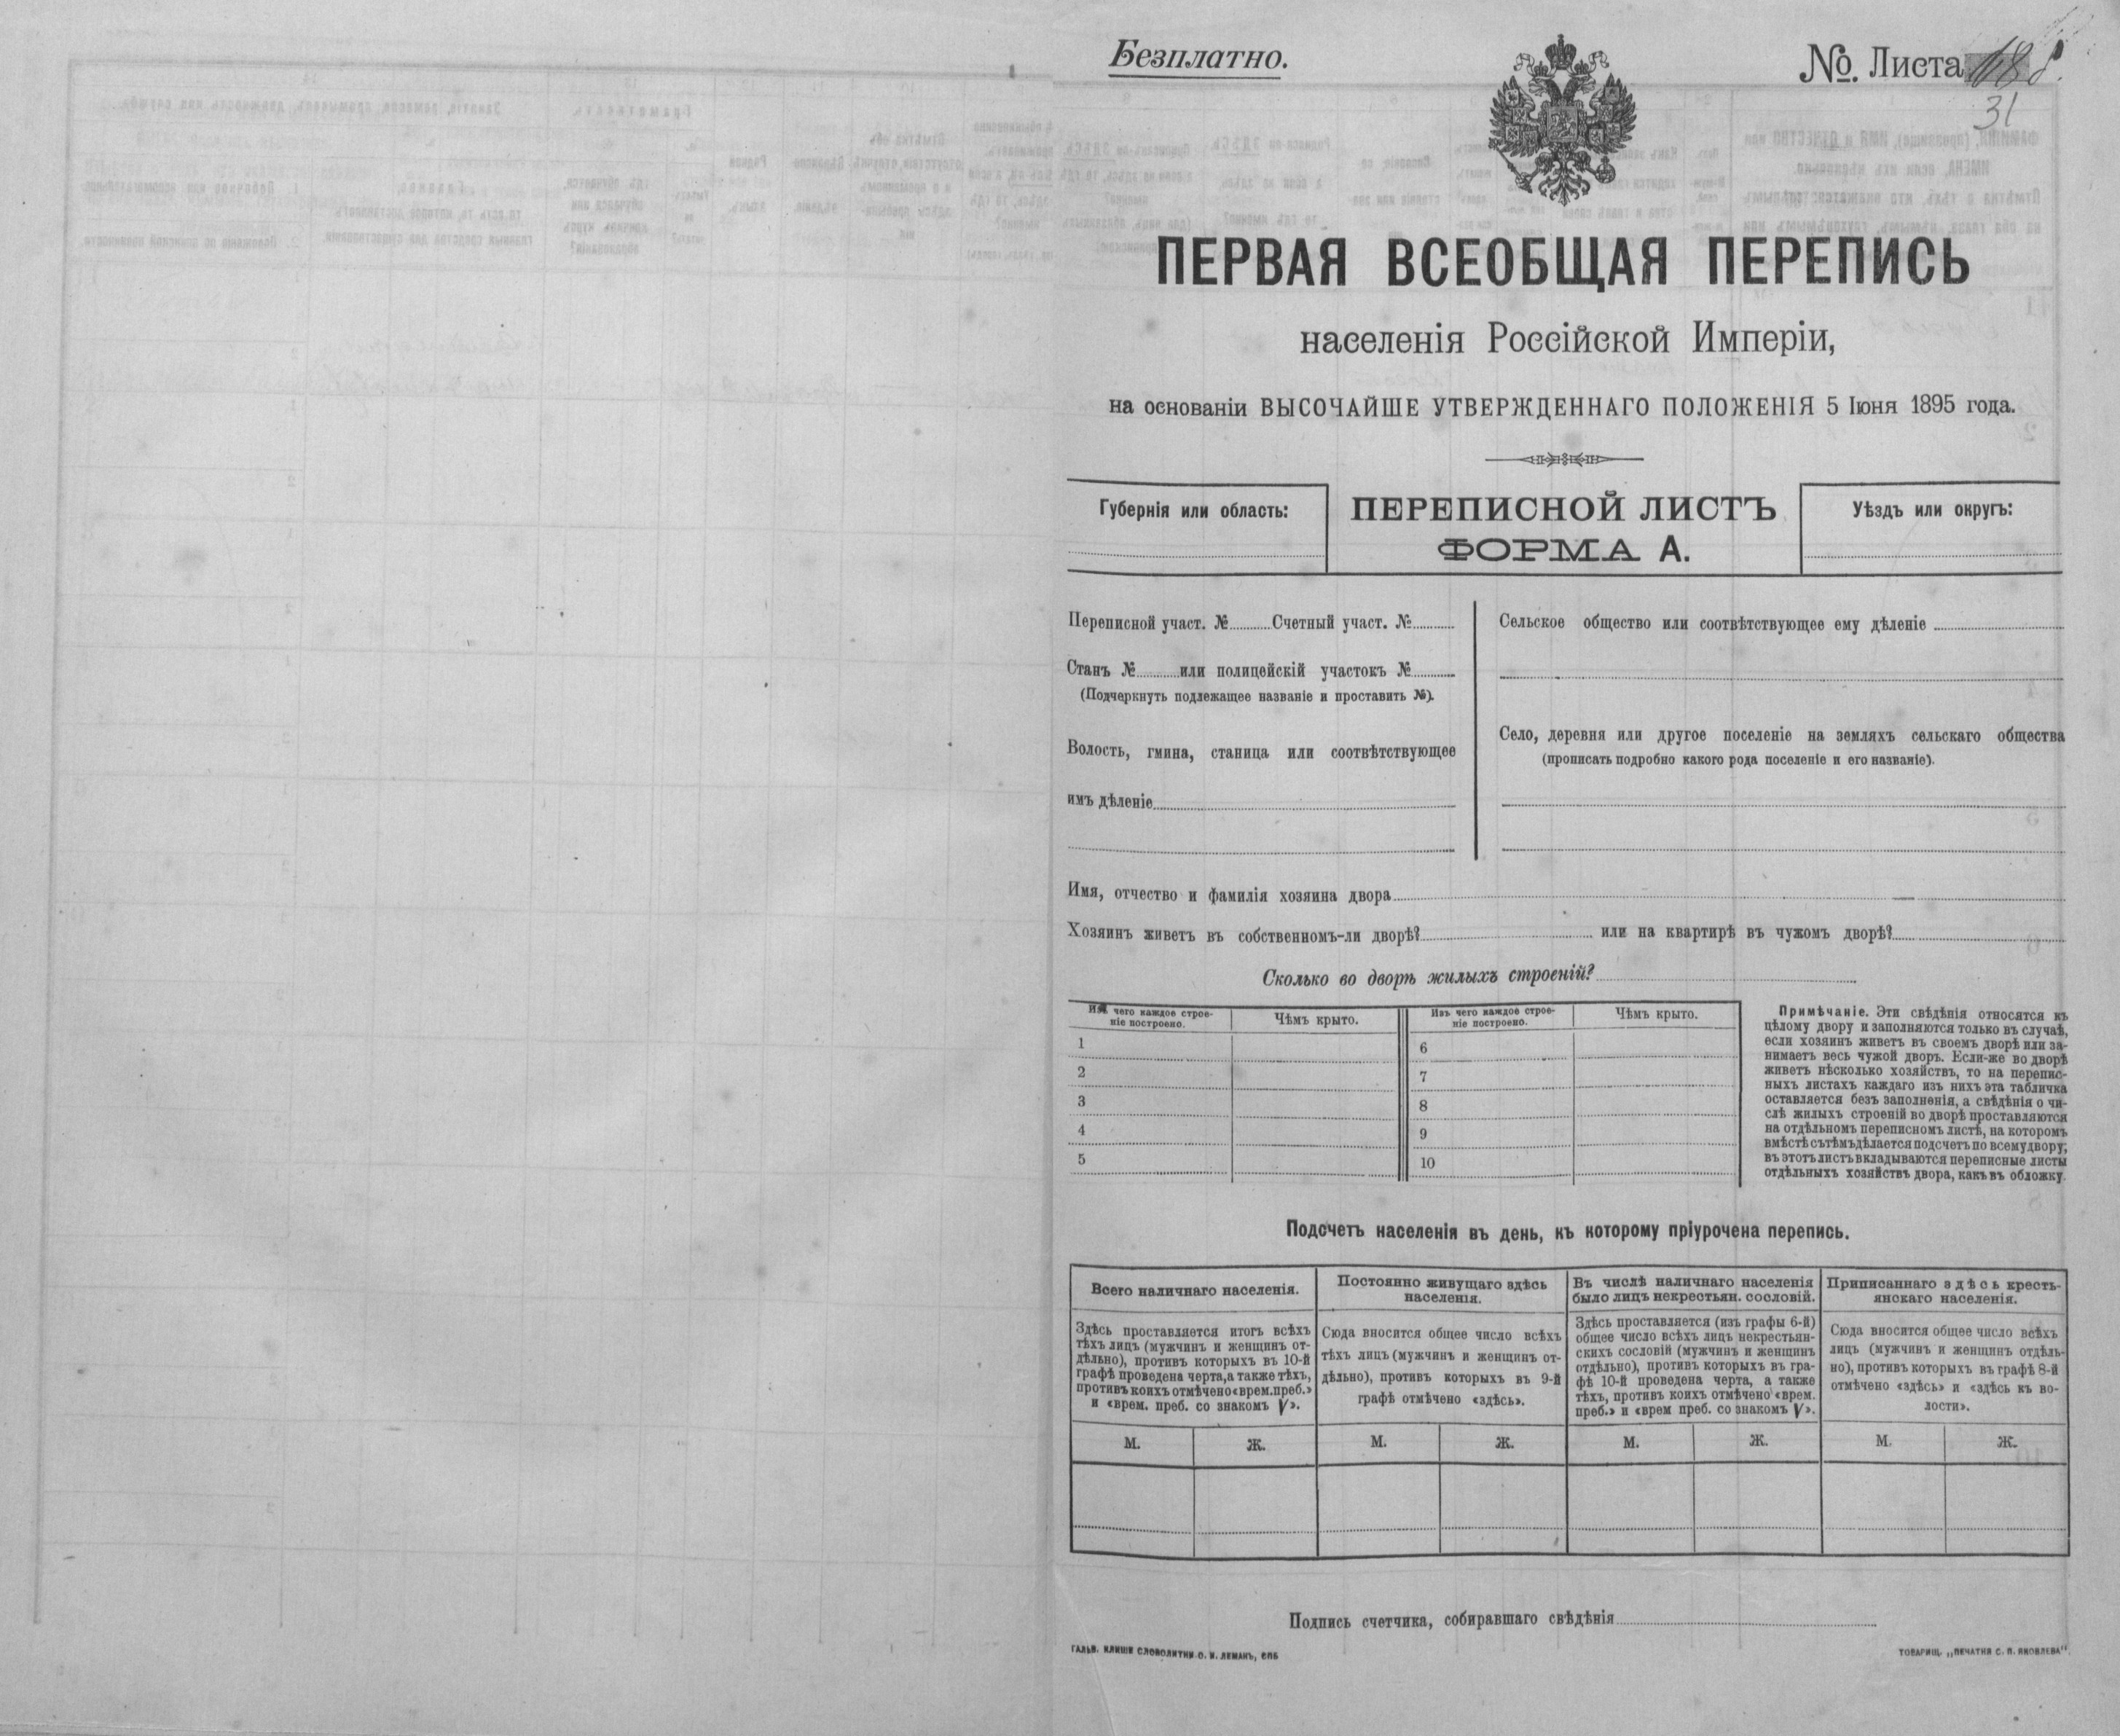 Безплатно.
№. Листа
31
ПЕРВАЯ ВСЕОБЩАЯ ПЕРЕПИСЬ
населенія Россійской Имперіи,
на основаніи ВЫСОЧАЙШЕ УТВЕРЖДЕННАГО ПОЛОЖЕНІЯ 5 Іюня 1895 года.
Губернія или область:
ПЕРЕПИСНОЙ ЛИСТЪ
ФОРМА А.
Уѣздъ или округъ:
Переписной участ. № Счетный участ. №
Станъ № или полицейскій участокъ №
(Подчеркнуть подлежащее названіе и проставить №).
Волость, гмина, станица или соотвѣтствующее
имъ дѣленіе
Сельское общество или соотвѣтствующее ему дѣленіе
Село, деревня или другое поселеніе на земляхъ сельскаго общества
(прописать подробно какого рода поселеніе и его названіе).
Имя, отчество и фамилія хозяина двора
Хозяинъ живетъ въ собственномъ-ли дворѣ? или на квартирѣ въ чужомъ дворѣ?
Сколько во дворѣ жилыхъ строеній?
Изъ чего каждое строе-
ніе построено.
Чѣмъ крыто.
Изъ чего каждое строе-
ніе построено.
Чѣмъ крыто.
1
2
3
4
5
6
7
8
9
10
Примѣчаніе. Эти свѣдѣнія относятся къ
цѣлому двору и заполняются только въ случаѣ,
если хозяинъ живетъ въ своемъ дворѣ или за-
нимаетъ весь чужой дворъ. Если-же во дворѣ
живетъ нѣсколько хозяйствъ, то на перепис-
ныхъ листахъ каждаго изъ нихъ эта табличка
оставляется безъ заполненія, а свѣдѣнія о чи-
слѣ жилыхъ строеній во дворѣ проставляются
на отдѣльномъ переписномъ листѣ, на которомъ
вмѣстѣ съ тѣмъ дѣлается подсчетъ по всему двору;
въ этотъ листъ вкладываются переписные листы
отдѣльныхъ хозяйствъ двора, какъ въ обложку.
Подсчетъ населенія въ день, къ которому пріурочена перепись.
Всего наличнаго населенія.
Здѣсь проставляется итогъ всѣхъ
тѣхъ лицъ (мужчинъ и женщинъ от-
дѣльно), противъ которыхъ въ 10-й
графѣ проведена черта, а также тѣхъ,
противъ коихъ отмѣчено «врем. преб.»
и «врем. преб. со знакомъ V».
Постоянно живущаго здѣсь
населенія.
Сюда вносится общее число всѣхъ
тѣхъ лицъ (мужчинъ и женщинъ от-
дѣльно), противъ которыхъ въ 9-й
графѣ отмѣчено «здѣсь».
Въ числѣ наличнаго населенія
было лицъ некрестьян. сословій.
Здѣсь проставляется (изъ графы 6-й)
общее число всѣхъ лицъ некрестьян-
скихъ сословій (мужчинъ и женщинъ
отдѣльно), противъ которыхъ въ гра-
фѣ 10-й проведена черта, а также
тѣхъ, противъ коихъ отмѣчено «врем.
преб.» и «врем преб. со знакомъ V».
Приписаннаго здѣсь кресть-
янскаго населенія.
Сюда вносится общее число всѣхъ
лицъ (мужчинъ и женщинъ отдѣль-
но), противъ которыхъ въ графѣ 8-й
отмѣчено «здѣсь» и «здѣсь къ во-
лости».
М. Ж. М. Ж. М. Ж. М. Ж.
Подпись счетчика, собиравшаго свѣдѣнія
ГАЛЬВ. КЛИШЕ СЛОВОЛИТНИ О. И. ЛЕМАНЪ, СПБ
ТОВАРИЩ. „ПЕЧАТНЯ С. П. ЯКОВЛЕВА"